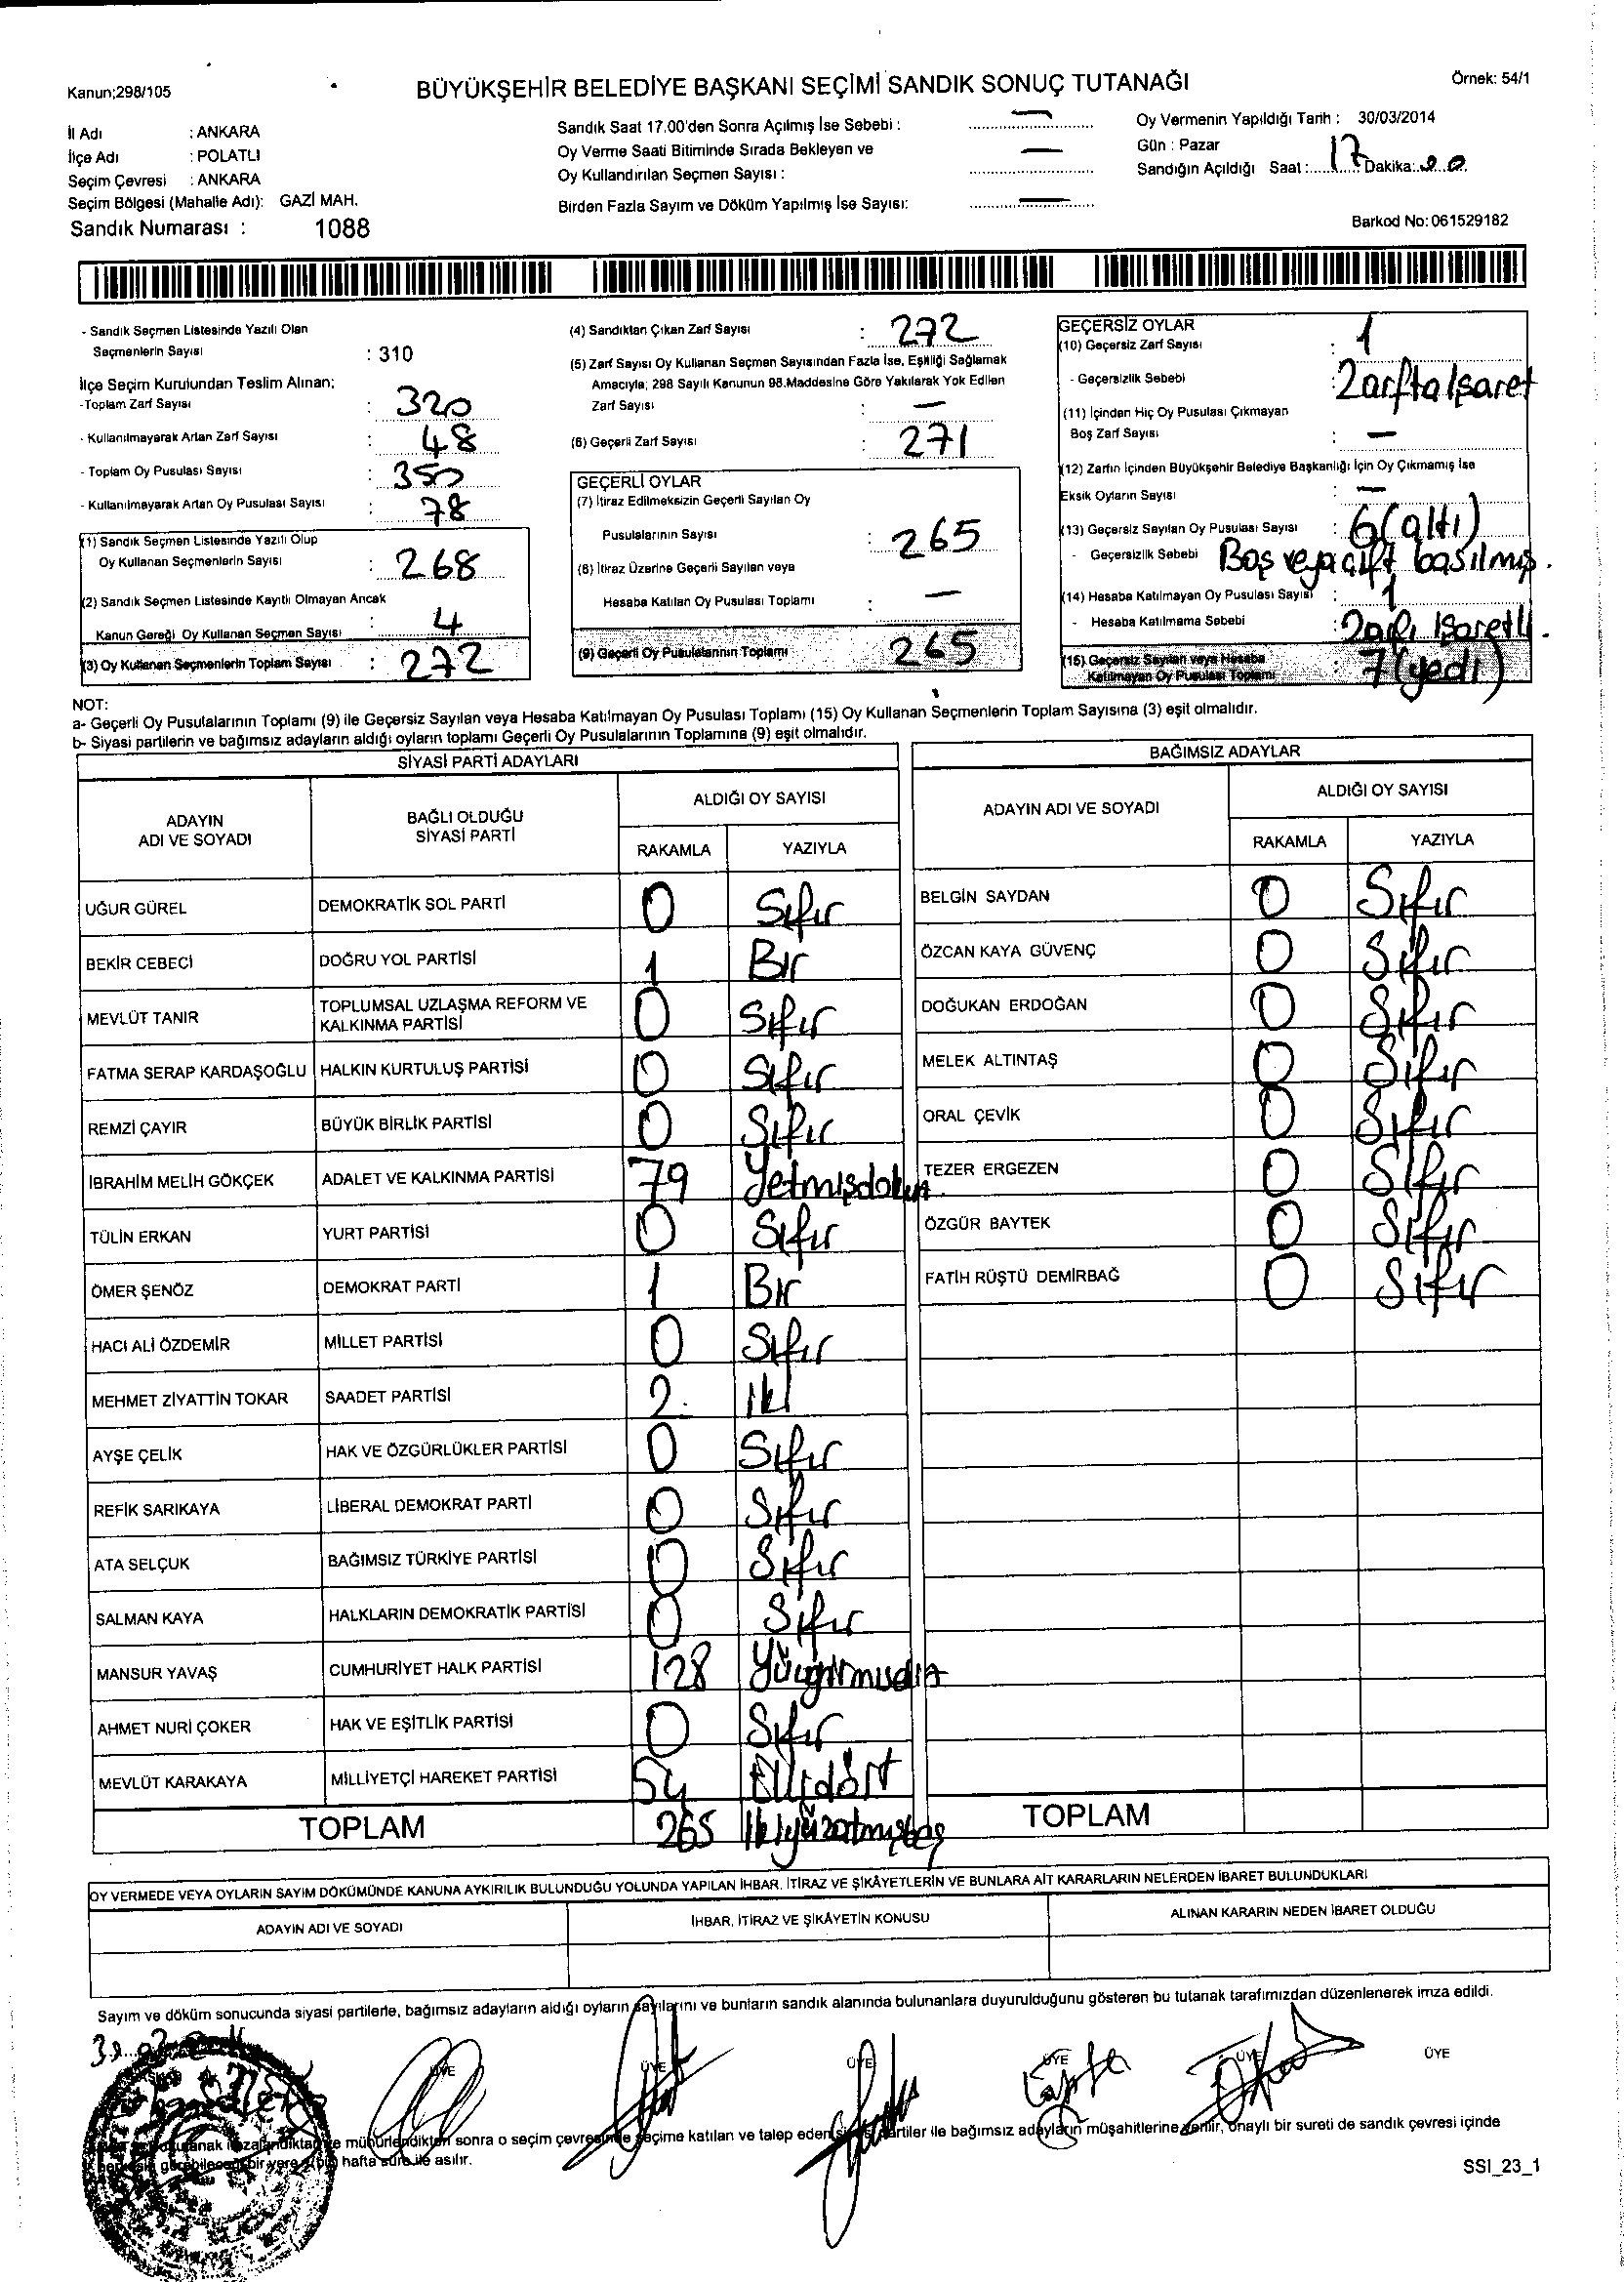 Kanun;298/105
BÜYÜKŞEHİR BELEDİYE BAŞKANI SEÇİMİ SANDIK SONUÇ TUTANAĞI
Örnek: 54/1
İl Adı : ANKARA
İlçe Adı : POLATLI
Seçim Çevresi : ANKARA
Seçim Bölgesi (Mahalle Adı): GAZİ MAH.
Sandık Numarası : 1088
Sandık Saat 17.00'den Sonra Açılmış İse Sebebi : —
Oy Verme Saati Bitiminde Sırada Bekleyen ve
Oy Kullandırılan Seçmen Sayısı : —
Birden Fazla Sayım ve Döküm Yapılmış İse Sayısı: —
Oy Vermenin Yapıldığı Tarih : 30/03/2014
Gün : Pazar
Sandığın Açıldığı Saat: 17 Dakika: 20
Barkod No: 061529182
- Sandık Seçmen Listesinde Yazılı Olan
Seçmenlerin Sayısı : 310
İlçe Seçim Kurulundan Teslim Alınan;
-Toplam Zarf Sayısı : 320
- Kullanılmayarak Artan Zarf Sayısı : 48
- Toplam Oy Pusulası Sayısı : 350
- Kullanılmayarak Artan Oy Pusulası Sayısı : 78
(1) Sandık Seçmen Listesinde Yazılı Olup
Oy Kullanan Seçmenlerin Sayısı : 268
(2) Sandık Seçmen Listesinde Kayıtlı Olmayan Ancak
Kanun Gereği Oy Kullanan Seçmen Sayısı : 4
(3) Oy Kullanan Seçmenlerin Toplam Sayısı : 272
(4) Sandıktan Çıkan Zarf Sayısı : 272
(5) Zarf Sayısı Oy Kullanan Seçmen Sayısından Fazla İse, Eşitliği Sağlamak
Amacıyla; 298 Sayılı Kanunun 98.Maddesine Göre Yakılarak Yok Edilen
Zarf Sayısı : —
(6) Geçerli Zarf Sayısı : 271
GEÇERLİ OYLAR
(7) İtiraz Edilmeksizin Geçerli Sayılan Oy
Pusulalarının Sayısı : 265
(8) İtiraz Üzerine Geçerli Sayılan veya
Hesaba Katılan Oy Pusulası Toplamı : —
(9) Geçerli Oy Pusulalarının Toplamı : 265
GEÇERSİZ OYLAR
(10) Geçersiz Zarf Sayısı : 1
- Geçersizlik Sebebi : Zarfta İşaret
(11) İçinden Hiç Oy Pusulası Çıkmayan
Boş Zarf Sayısı : —
(12) Zarfın İçinden Büyükşehir Belediye Başkanlığı İçin Oy Çıkmamış İse
Eksik Oyların Sayısı : —
(13) Geçersiz Sayılan Oy Pusulası Sayısı : 6 (altı)
- Geçersizlik Sebebi Boş veya çift basılmış.
(14) Hesaba Katılmayan Oy Pusulası Sayısı : 1
- Hesaba Katılmama Sebebi : Zarfı İşaretli.
(15) Geçersiz Sayılan veya Hesaba
Katılmayan Oy Pusulası Toplamı : 7 (yedi)
NOT:
a- Geçerli Oy Pusulalarının Toplamı (9) ile Geçersiz Sayılan veya Hesaba Katılmayan Oy Pusulası Toplamı (15) Oy Kullanan Seçmenlerin Toplam Sayısına (3) eşit olmalıdır.
b- Siyasi partilerin ve bağımsız adayların aldığı oyların toplamı Geçerli Oy Pusulalarının Toplamına (9) eşit olmalıdır.
SİYASİ PARTİ ADAYLARI
ADAYIN ADI VE SOYADI
BAĞLI OLDUĞU SİYASİ PARTİ
ALDIĞI OY SAYISI
RAKAMLA YAZIYLA
UĞUR GÜREL DEMOKRATİK SOL PARTİ 0 Sıfır
BEKİR CEBECİ DOĞRU YOL PARTİSİ 1 Bir
MEVLÜT TANIR TOPLUMSAL UZLAŞMA REFORM VE KALKINMA PARTİSİ 0 Sıfır
FATMA SERAP KARDAŞOĞLU HALKIN KURTULUŞ PARTİSİ 0 Sıfır
REMZİ ÇAYIR BÜYÜK BİRLİK PARTİSİ 0 Sıfır
İBRAHİM MELİH GÖKÇEK ADALET VE KALKINMA PARTİSİ 79 Yetmişdokuz
TÜLİN ERKAN YURT PARTİSİ 0 Sıfır
ÖMER ŞENÖZ DEMOKRAT PARTİ 1 Bir
HACI ALİ ÖZDEMİR MİLLET PARTİSİ 0 Sıfır
MEHMET ZİYATTİN TOKAR SAADET PARTİSİ 2 iki
AYŞE ÇELİK HAK VE ÖZGÜRLÜKLER PARTİSİ 0 Sıfır
REFİK SARIKAYA LİBERAL DEMOKRAT PARTİ 0 Sıfır
ATA SELÇUK BAĞIMSIZ TÜRKİYE PARTİSİ 0 Sıfır
SALMAN KAYA HALKLARIN DEMOKRATİK PARTİSİ 0 Sıfır
MANSUR YAVAŞ CUMHURİYET HALK PARTİSİ 128
AHMET NURİ ÇOKER HAK VE EŞİTLİK PARTİSİ 0 Sıfır
MEVLÜT KARAKAYA MİLLİYETÇİ HAREKET PARTİSİ 54 Ellidört
TOPLAM 265 İkiyüzatmışbeş
BAĞIMSIZ ADAYLAR
ADAYIN ADI VE SOYADI
ALDIĞI OY SAYISI
RAKAMLA YAZIYLA
BELGİN SAYDAN 0 Sıfır
ÖZCAN KAYA GÜVENÇ 0 Sıfır
DOĞUKAN ERDOĞAN 0 Sıfır
MELEK ALTINTAŞ 0 Sıfır
ORAL ÇEVİK 0 Sıfır
TEZER ERGEZEN 0 Sıfır
ÖZGÜR BAYTEK 0 Sıfır
FATİH RÜŞTÜ DEMİRBAĞ 0 Sıfır
TOPLAM
OY VERMEDE VEYA OYLARIN SAYIM DÖKÜMÜNDE KANUNA AYKIRILIK BULUNDUĞU YOLUNDA YAPILAN İHBAR, İTİRAZ VE ŞİKÂYETLERİN VE BUNLARA AİT KARARLARIN NELERDEN İBARET BULUNDUKLARI
ADAYIN ADI VE SOYADI
İHBAR, İTİRAZ VE ŞİKÂYETİN KONUSU
ALINAN KARARIN NEDEN İBARET OLDUĞU
Sayım ve döküm sonucunda siyasi partilerle, bağımsız adayların aldığı oyların sayılarını ve bunların sandık alanında bulunanlara duyurulduğunu gösteren bu tutanak tarafımızdan düzenlenerek imza edildi.
ÜYE ÜYE ÜYE ÜYE ÜYE ÜYE
mühürlendikten sonra o seçim çevresinde seçime katılan ve talep eden siyasi partiler ile bağımsız adayların müşahitlerine verilir, onaylı bir sureti de sandık çevresi içinde
görebileceği bir yere 1 (bir) hafta süre ile asılır.
SSI_23_1